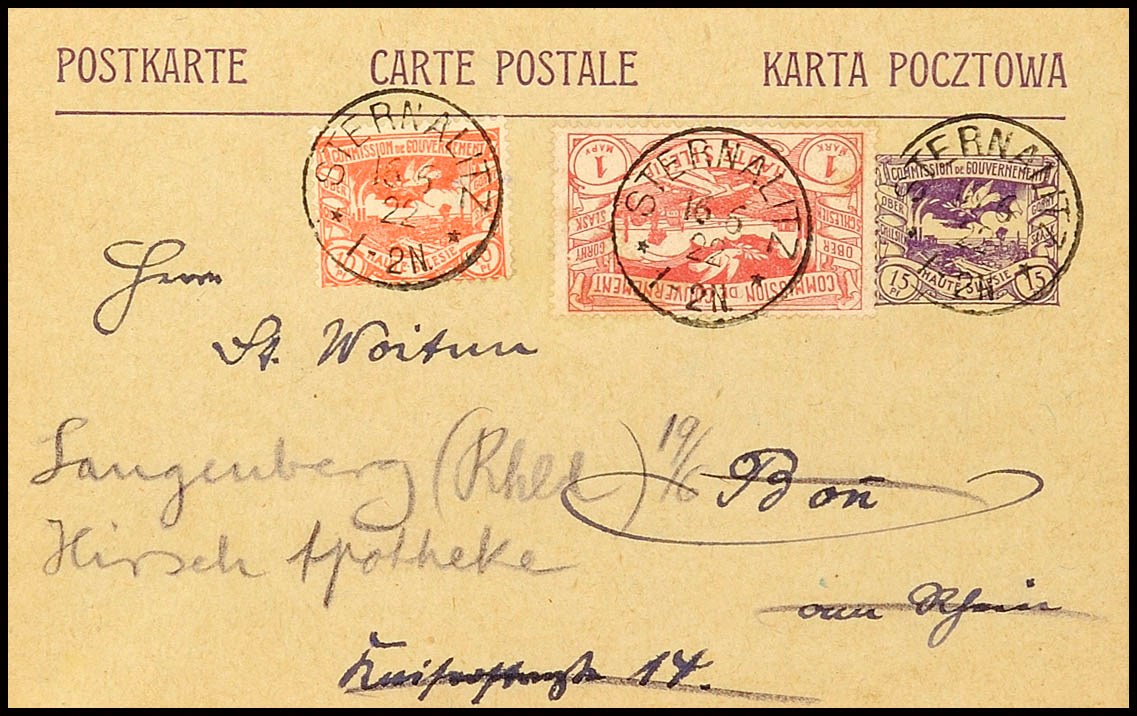 POSTKARTE CARTE POSTALE KARTA POCZTOWA
STERNALITZ
16 5
22
* 1-2N. *
COMMISSION DE GOUVERNEMENT
OBER
10 HAUTE SILESIE 10
STERNALITZ
16 5
22
* 1-2N. *
COMMISSION DE GOUVERNEMENT
OBER SCHLESIEN
GÓRNY ŚLĄSK
HAUTE SILESIE
1 MARK
1 MARK
STERNALITZ
* 1-2N. *
COMMISSION DE GOUVERNEMENT
OBER
GÓRNY
15 HAUTE SILESIE 15
Herrn
St. Woitun
Langenberg (Rhld) 19/6 Bon̄
Hirsch Apotheke
am Rhein
Kaiserstraße 14.